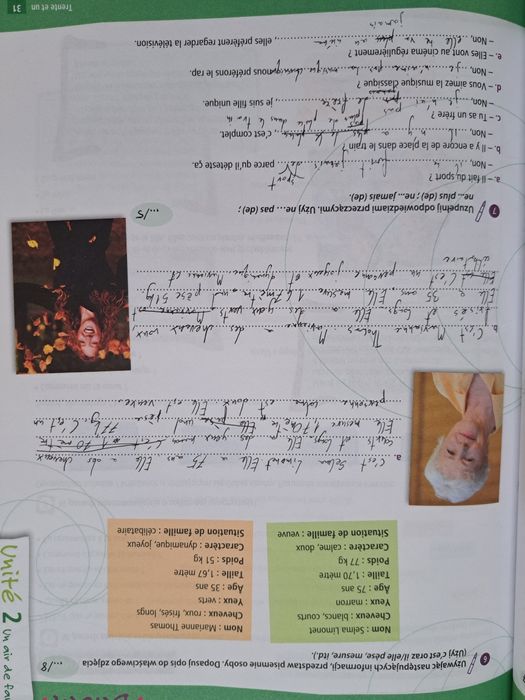 Unité 2 Un air de fa
6 Używając następujących informacji, przedstaw pisemnie osoby. Dopasuj opis do właściwego zdjęcia
(Użyj c'est oraz il/elle pèse, mesure, itd.).
.../8
Nom : Selma Limonet
Cheveux : blancs, courts
Yeux : marron
Âge : 75 ans
Taille : 1,70 mètre
Poids : 77 kg
Caractère : calme, doux
Situation de famille : veuve
Nom : Marianne Thomas
Cheveux : roux, frisés, longs
Yeux : verts
Âge : 35 ans
Taille : 1,67 mètre
Poids : 51 kg
Caractère : dynamique, joyeux
Situation de famille : célibataire
a. C'est Selma Limonet Elle a 75 ans Elle a cheveux
courts et Elle a des yeux
Elle mesure 77 kg. C'est un
personne calme et doux Elle est veuve.
b. C'est Marianne Thomas M a des cheveux roux,
frisés et longs Elle a des yeux verts
Elle a 35 ans Elle mesure 1 67 mètre pèse 51 kg
C'est un personne joyeux et dynamique Marianne est
7 Uzupełnij odpowiedziami przeczącymi. Użyj ne... pas (de) ;
ne... plus (de) ; ne... jamais (de).
.../5
a. – Il fait du sport ?
– Non, il fait jamais de sport parce qu'il déteste ça.
b. – Il y a encore de la place dans le train ?
– Non, il n'y a pas de place dans le train, c'est complet.
c. – Tu as un frère ?
– Non, j' pas de frère, je suis fille unique.
d. – Vous aimez la musique classique ?
– Non, je pas la musique nous préférons le rap.
e. – Elles vont au cinéma régulièrement ?
– Non, elle ne va jamais, elles préfèrent regarder la télévision.
Trente et un 31